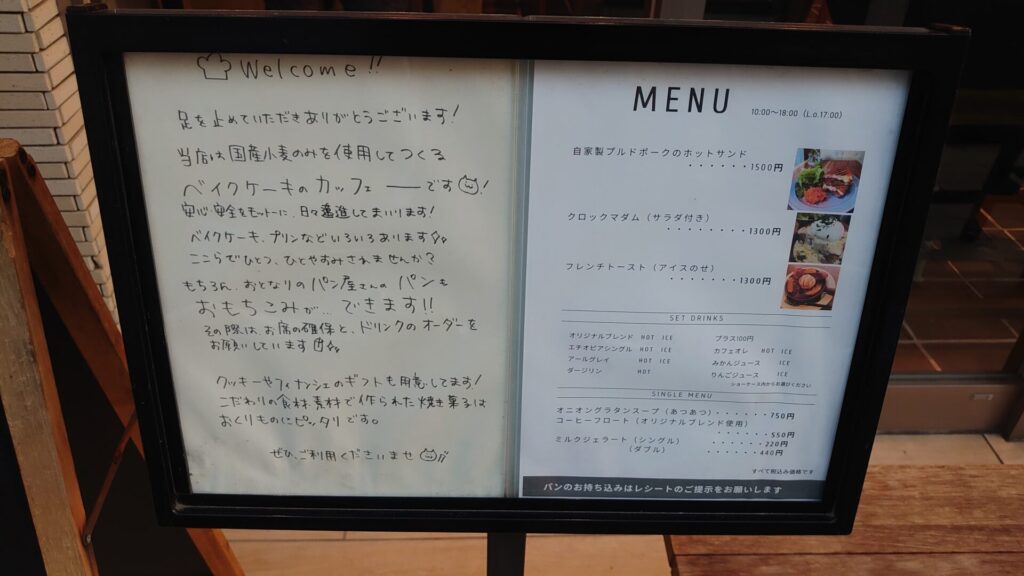 Welcome!!
足を止めていただきありがとうございます!
当店は国産小麦のみを使用してつくる
ベイクケーキのカッフェーーです!
安心・安全をモットーに、日々邁進してまいります!
ベイクケーキ、プリンなどいろいろあります
ここらでひとつ、ひとやすみされませんか?
もちろん、おとなりのパン屋さんの パンも
おもちこみが… できます!!
その際は、お席の確保と、ドリンクのオーダーを
お願いしています
クッキーやフィナンシェのギフトも用意してます!
こだわりの食材・素材で作られた焼き菓子は
おくりものにピッタリです。
ぜひ、ご利用くださいませ
MENU 10:00〜18:00 (L.o.17:00)
自家製プルドポークのホットサンド
・・・・・・・1500円
クロックマダム(サラダ付き)
・・・・・・・・1300円
フレンチトースト(アイスのせ)
・・・・・・・・1300円
SET DRINKS
オリジナルブレンド HOT ICE
エチオピアシングル HOT ICE
アールグレイ HOT ICE
ダージリン HOT
プラス100円
カフェオレ HOT ICE
みかんジュース ICE
りんごジュース ICE
ショーケース内からお選びください
SINGLE MENU
オニオングラタンスープ(あつあつ)・・・・・・・750円
コーヒーフロート(オリジナルブレンド使用)
・・・・・・・550円
ミルクジェラート(シングル) ・・・・・・・220円
(ダブル) ・・・・・・・440円
すべて税込み価格です
パンのお持ち込みはレシートのご提示をお願いします